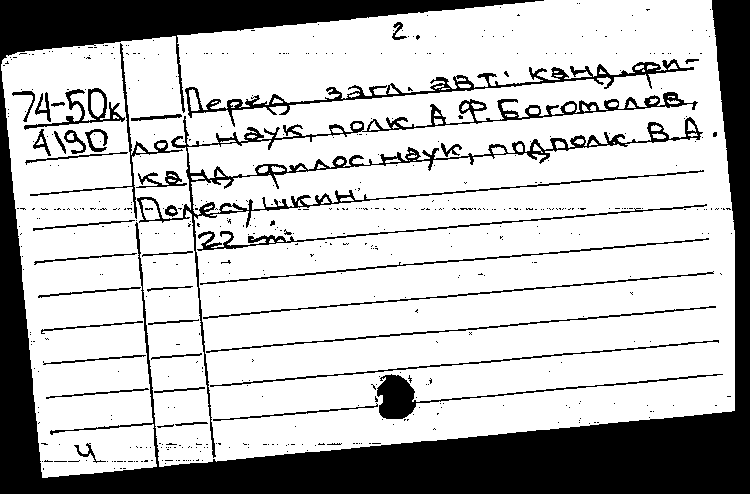 2.
74-50к
4190
Перед загл. авт.: канд. фи-
лос. наук, полк. А.Ф. Богомолов,
канд. филос. наук, подполк. В.А.
Полесушкин.
22 ст.
ч